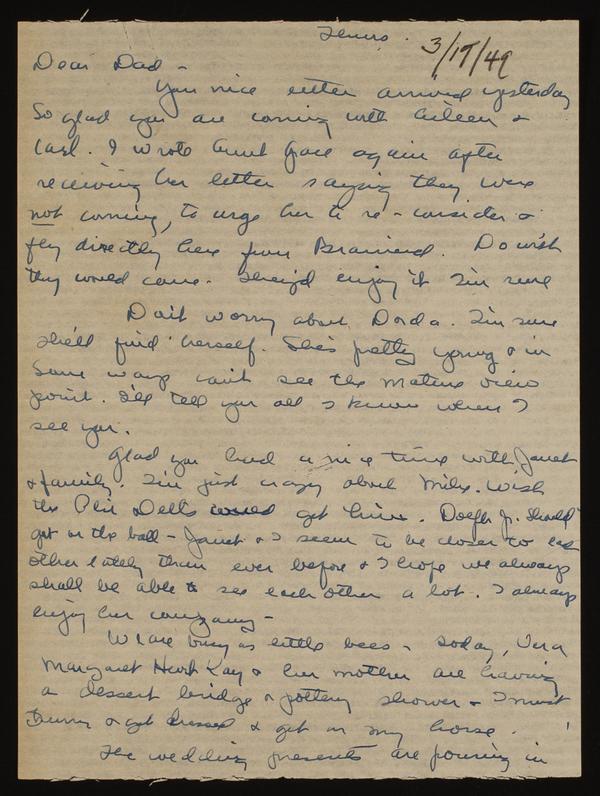 Thurs.
3/17/49
Dear Dad -
Your nice letter arrived yesterday
So glad you are coming with Aileen &
Carl. I wrote Aunt Grace again after
receiving her letter saying they were
not coming, to urge her to re-consider &
fly directly here from Brainerd. Do wish
they would come. They'd enjoy it I'm sure
Don't worry about Dorda. I'm sure
she'll find herself. She's pretty young & in
some ways can't see the mature view
point. I'll tell you all I know when I
see you.
Glad you had a nice time with Janet
& family. I'm just crazy about Mike. Wish
the Phi Delts could get him. Dolph Jr. should
get on the ball - Janet & I seem to be closer to each
other lately than ever before & I hope we always
shall be able to see each other a lot. I always
enjoy her company -
We are busy as little bees - today,
Margaret Kay & her mother are having
a dessert bridge & pottery shower & I must
hurry & get dressed & get on my horse.
The wedding presents are pouring in